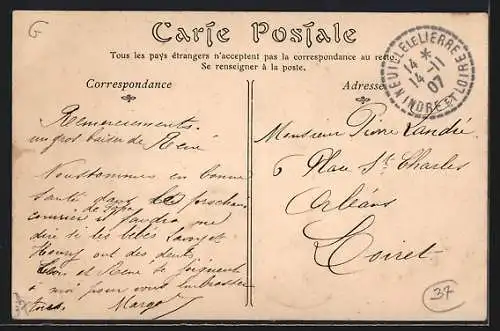 G
Carte Postale
Tous les pays étrangers n'acceptent pas la correspondance au recto
Se renseigner à la poste.
Correspondance
Adresse
NEUILLE-LE-LIERRE
14 *
14 - 11
07
INDRE-ET-LOIRE
Remerciements.
un gros baiser de René
Nous sommes en bonne
santé dans le prochain
courrier il faudra me
dire si les bébés
Henry ont des dents
et René se joignent
à moi pour vous embrasser
tous. Margot
Monsieur Pierre Landré
6 Place St Charles
Orléans
Loiret
37